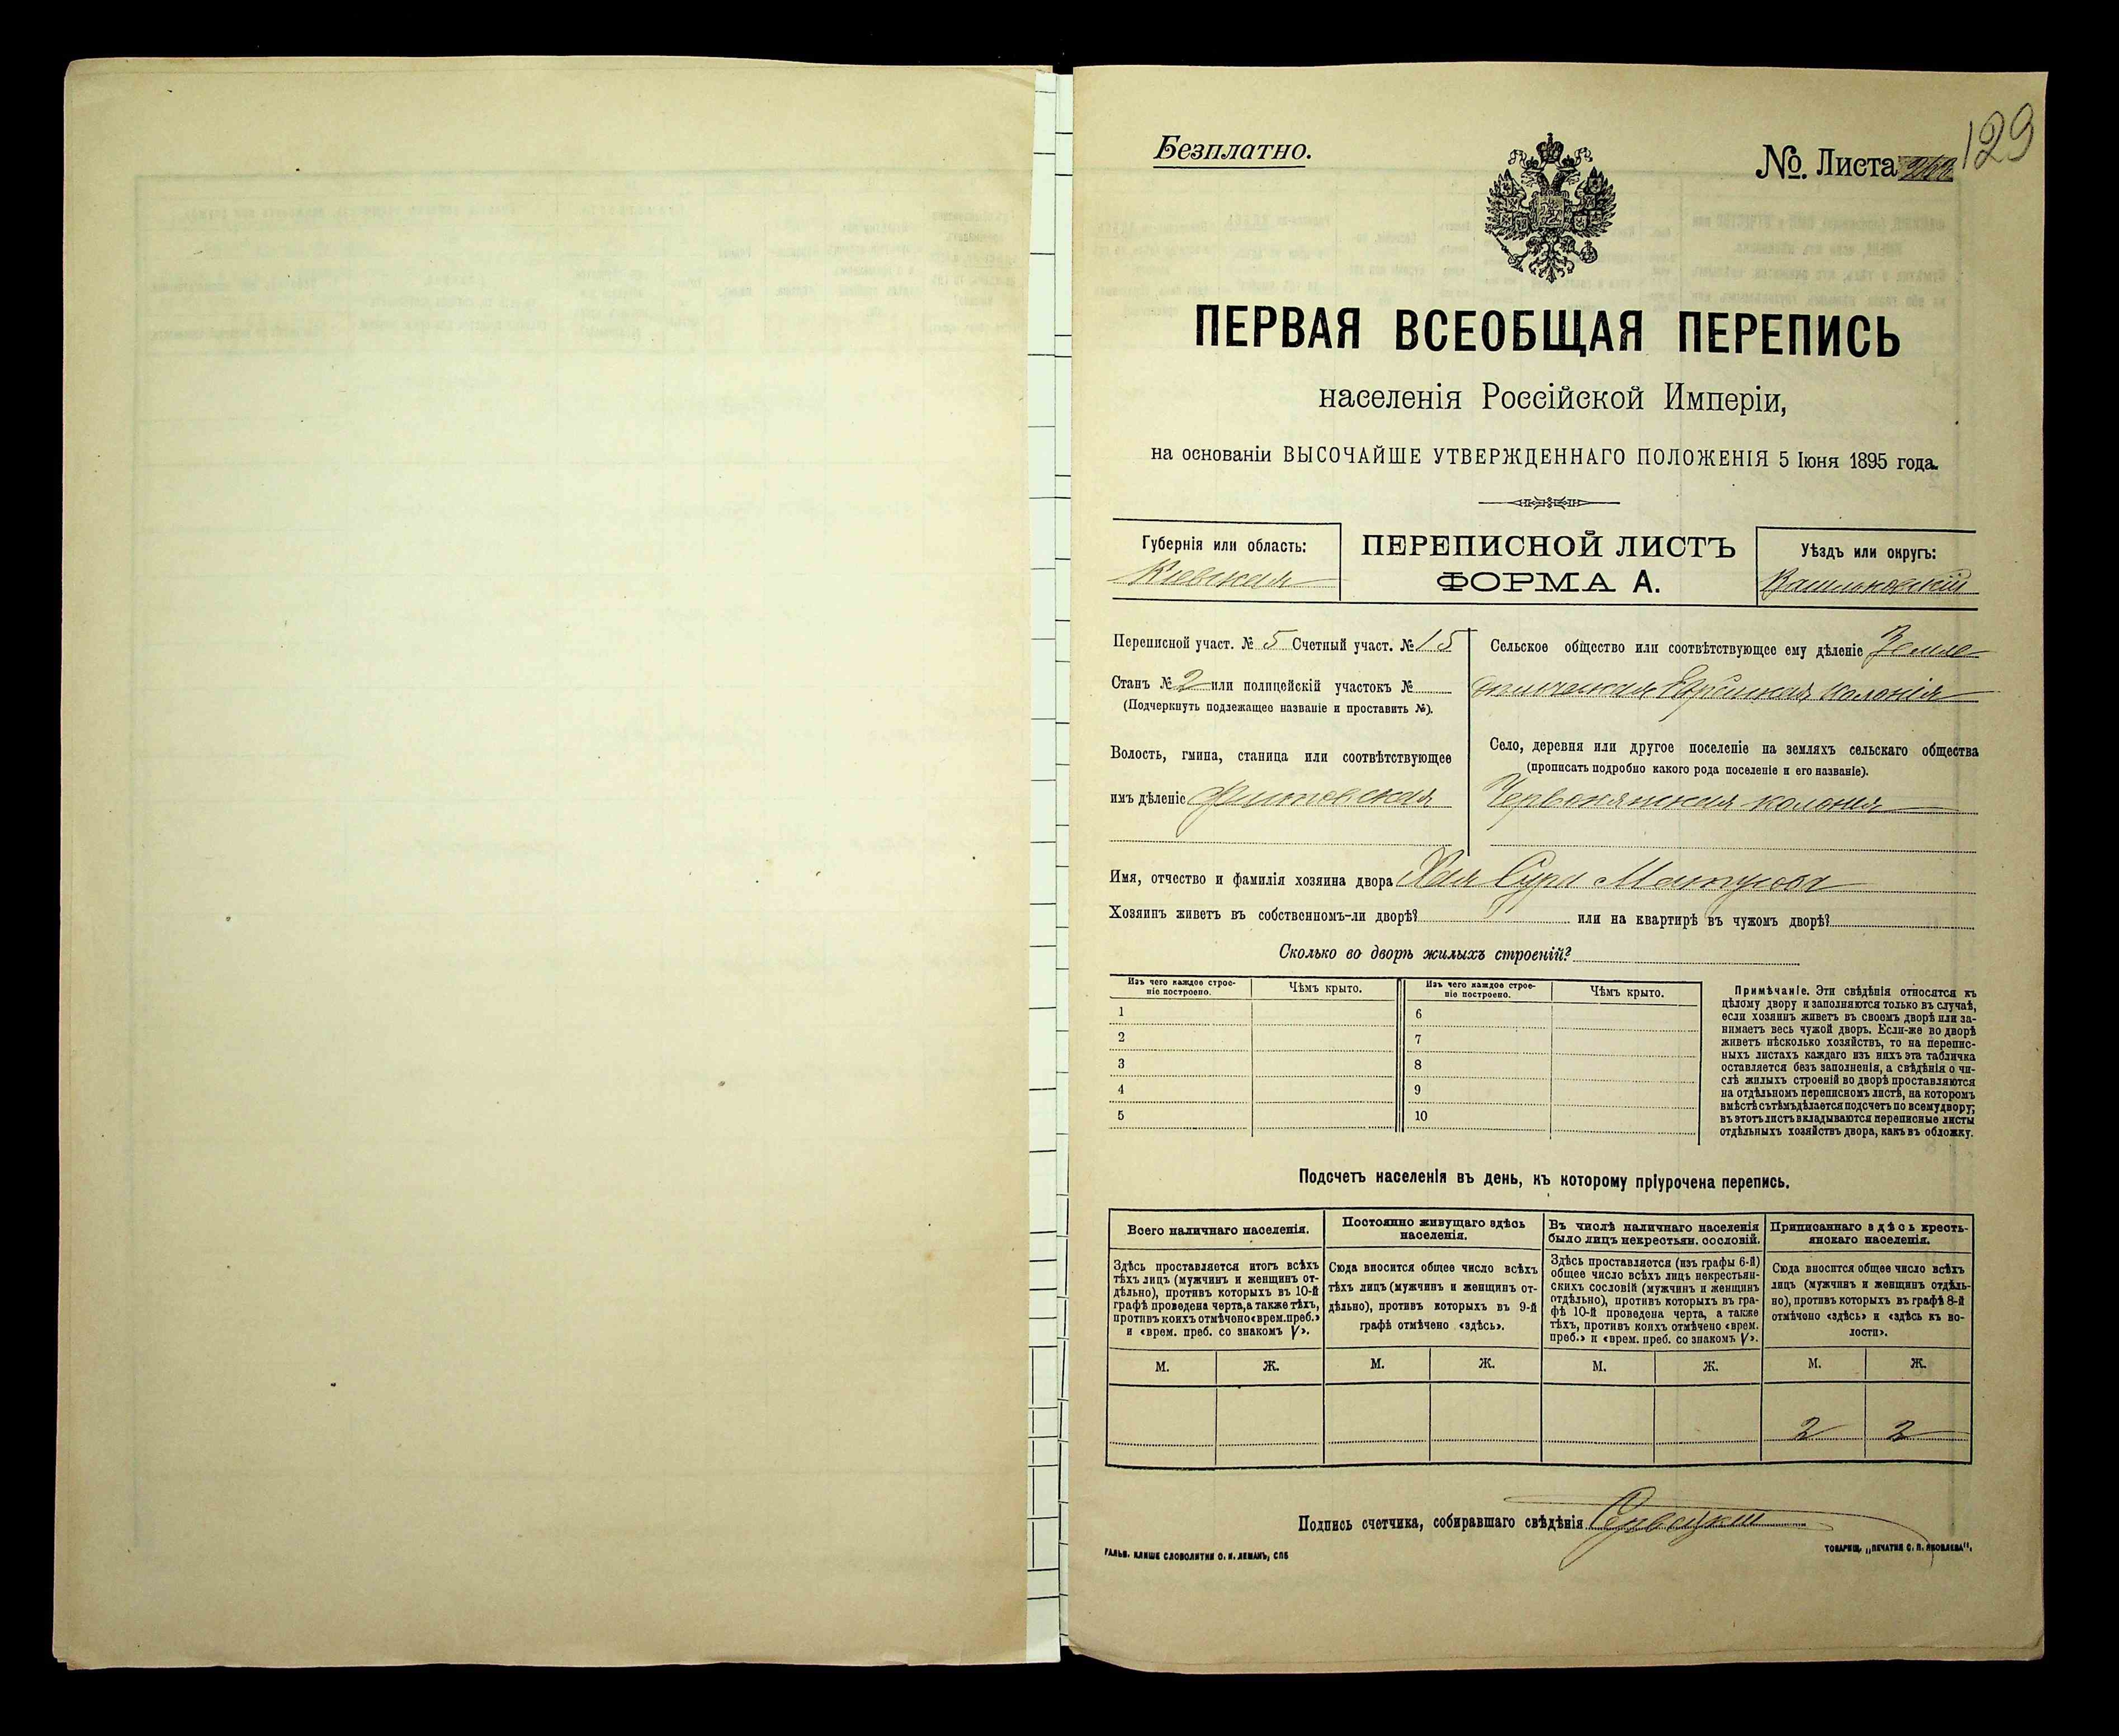 Безплатно.
№. Листа
129
ПЕРВАЯ ВСЕОБЩАЯ ПЕРЕПИСЬ
населенія Россійской Имперіи,
на основаніи ВЫСОЧАЙШЕ УТВЕРЖДЕННАГО ПОЛОЖЕНІЯ 5 Іюня 1895 года.
Губернія или область:
Кіевская
ПЕРЕПИСНОЙ ЛИСТЪ
ФОРМА А.
Уѣздъ или округъ:
Васильковскій
Переписной участ. № 5 Счетный участ. № 15
Станъ № 2 или полицейскій участокъ №
(Подчеркнуть подлежащее названіе и проставить №).
Волость, гмина, станица или соотвѣтствующее
имъ дѣленіе
Сельское общество или соотвѣтствующее ему дѣленіе Земле
колонія
Село, деревня или другое поселеніе на земляхъ сельскаго общества
(прописать подробно какого рода поселеніе и его названіе).
Червонянская колонія
Имя, отчество и фамилія хозяина двора Хая Сура
Хозяинъ живетъ въ собственномъ-ли дворѣ? или на квартирѣ въ чужомъ дворѣ?
Сколько во дворѣ жилыхъ строеній?
Изъ чего каждое строе-
ніе построено.
Чѣмъ крыто.
Изъ чего каждое строе-
ніе построено.
Чѣмъ крыто.
1 6
2 7
3 8
4 9
5 10
Примѣчаніе. Эти свѣдѣнія относятся къ
цѣлому двору и заполняются только въ случаѣ,
если хозяинъ живетъ въ своемъ дворѣ или за-
нимаетъ весь чужой дворъ. Если-же во дворѣ
живетъ нѣсколько хозяйствъ, то на перепис-
ныхъ листахъ каждаго изъ нихъ эта табличка
оставляется безъ заполненія, а свѣдѣнія о чи-
слѣ жилыхъ строеній во дворѣ проставляются
на отдѣльномъ переписномъ листѣ, на которомъ
вмѣстѣ съ тѣмъ дѣлается подсчетъ по всему двору;
въ этотъ листъ вкладываются переписные листы
отдѣльныхъ хозяйствъ двора, какъ въ обложку.
Подсчетъ населенія въ день, къ которому пріурочена перепись.
Всего наличнаго населенія.
Постоянно живущаго здѣсь
населенія.
Въ числѣ наличнаго населенія
было лицъ некрестьян. сословій.
Приписаннаго здѣсь кресть-
янскаго населенія.
Здѣсь проставляется итогъ всѣхъ
тѣхъ лицъ (мужчинъ и женщинъ от-
дѣльно), противъ которыхъ въ 10-й
графѣ проведена черта, а также тѣхъ,
противъ коихъ отмѣчено «врем. преб.»
и «врем. преб. со знакомъ V».
Сюда вносится общее число всѣхъ
тѣхъ лицъ (мужчинъ и женщинъ от-
дѣльно), противъ которыхъ въ 9-й
графѣ отмѣчено «здѣсь».
Здѣсь проставляется (изъ графы 6-й)
общее число всѣхъ лицъ некрестьян-
скихъ сословій (мужчинъ и женщинъ
отдѣльно), противъ которыхъ въ гра-
фѣ 10-й проведена черта, а также
тѣхъ, противъ коихъ отмѣчено «врем.
преб.» и «врем. преб. со знакомъ V».
Сюда вносится общее число всѣхъ
лицъ (мужчинъ и женщинъ отдѣль-
но), противъ которыхъ въ графѣ 8-й
отмѣчено «здѣсь» и «здѣсь къ во-
лости».
М. Ж. М. Ж. М. Ж. М. Ж.
2 2
Подпись счетчика, собиравшаго свѣдѣнія
ГАЛЬВ. КЛИШЕ СЛОВОЛИТНИ О. И. ЛЕМАНЪ, СПБ
ТОВАРИЩ. „ПЕЧАТНЯ С. П. ЯКОВЛЕВА".